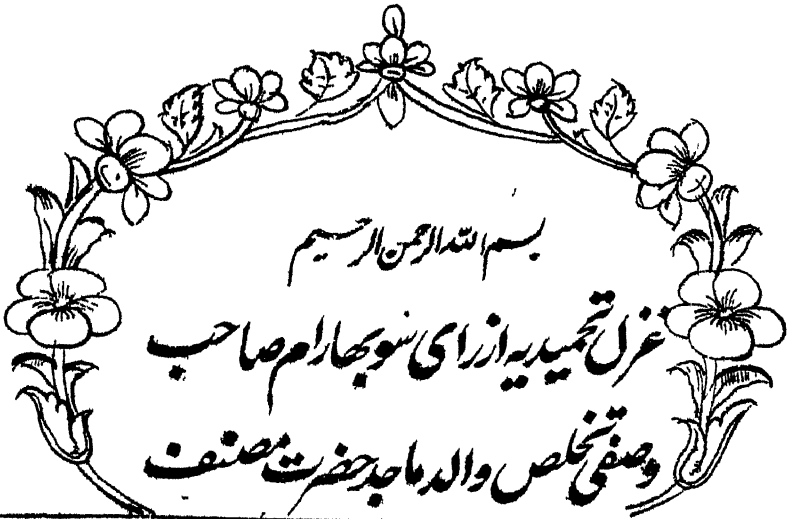 بسم الله الرحمن الرحیم
غزل تحمیدیہ از رای سوبھا رام صاحب
وصفی تخلص والد ماجد حضرت مصنف